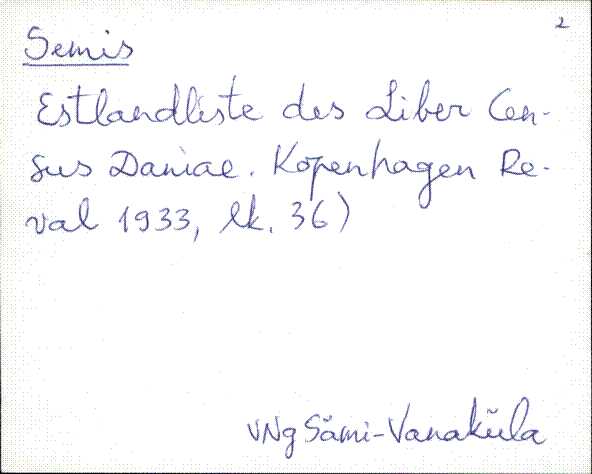 2
Semis
Estlandliste des Liber Cen-
sus Daniae. Kopenhagen Re-
val 1933, lk. 36)
VNg Sämi-Vanaküla